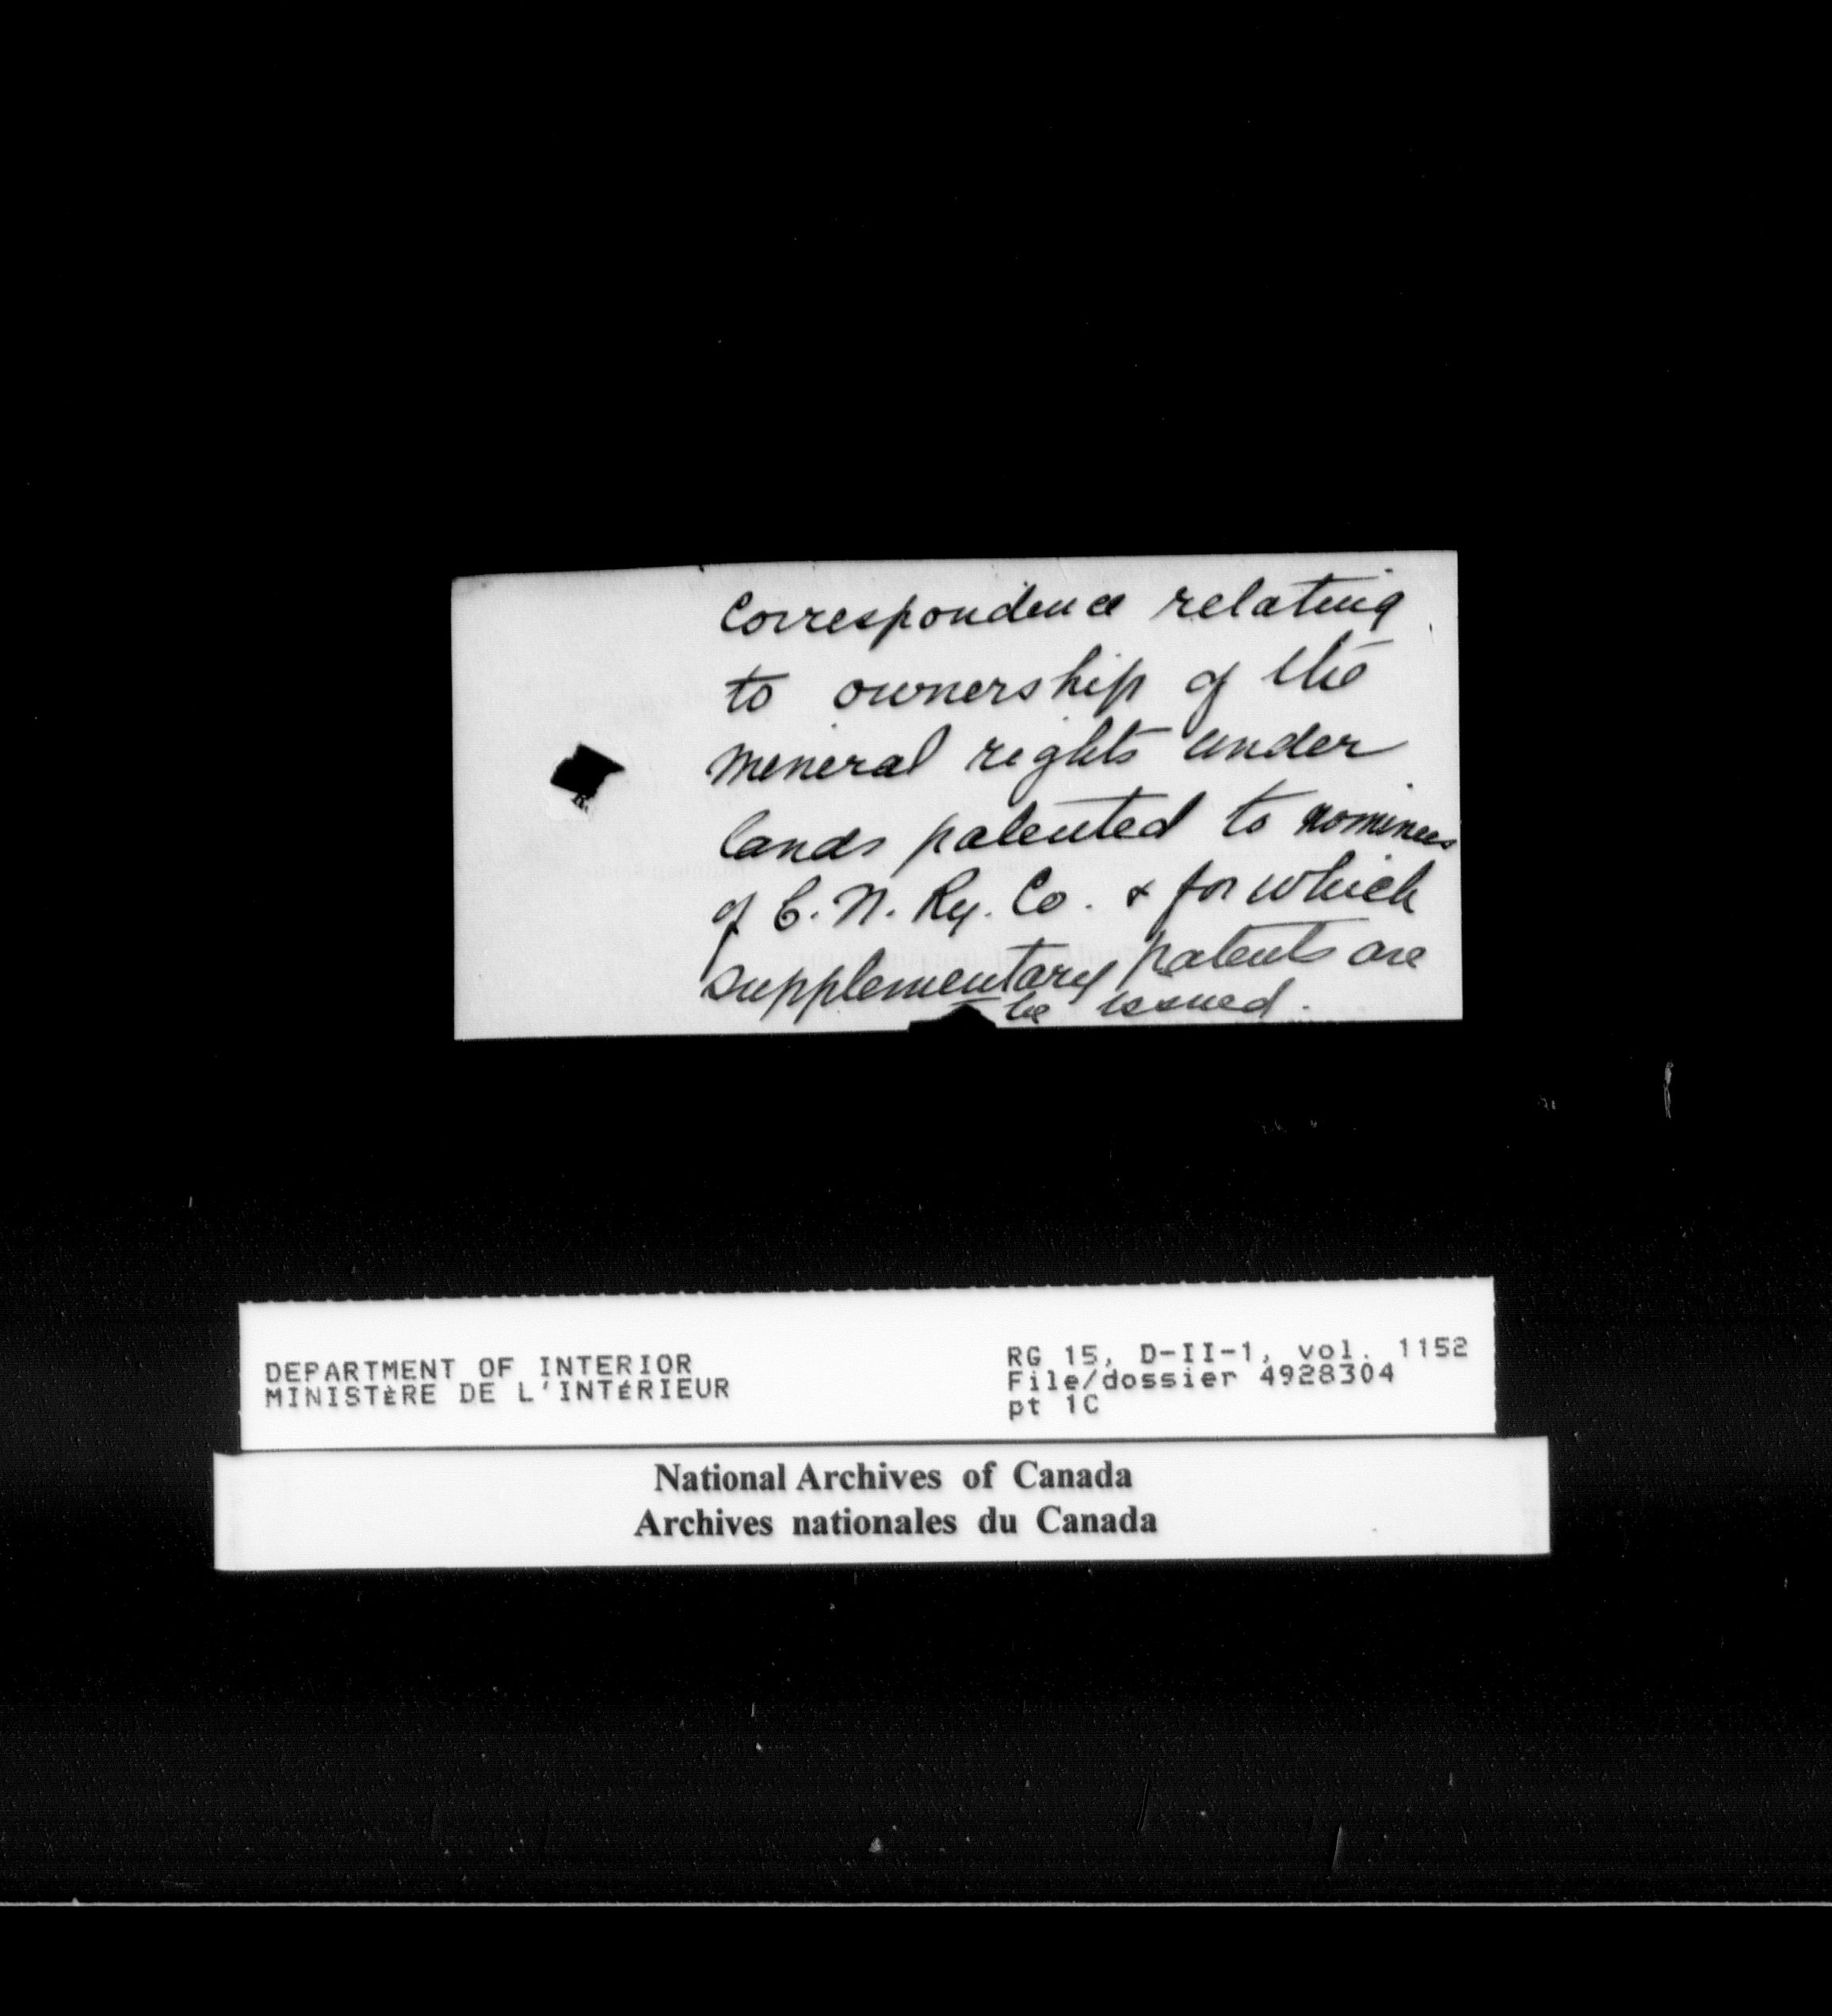 Correspondence relating
to ownership of the
mineral rights under
lands patented to nominees
of C. N. Ry. Co. & for which
supplementary patents are
be issued.
DEPARTMENT OF INTERIOR
MINISTÈRE DE L'INTÉRIEUR
RG 15, D-II-1, vol. 1152
File/dossier 4928304
pt 1C
National Archives of Canada
Archives nationales du Canada